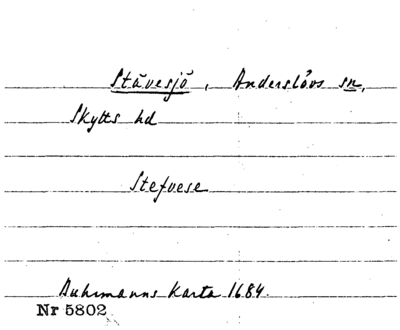 Stävesjö, Anderslövs sn,
Skytts hd
Stefvese
Buhrmanns Karta 1684.
Nr 5802